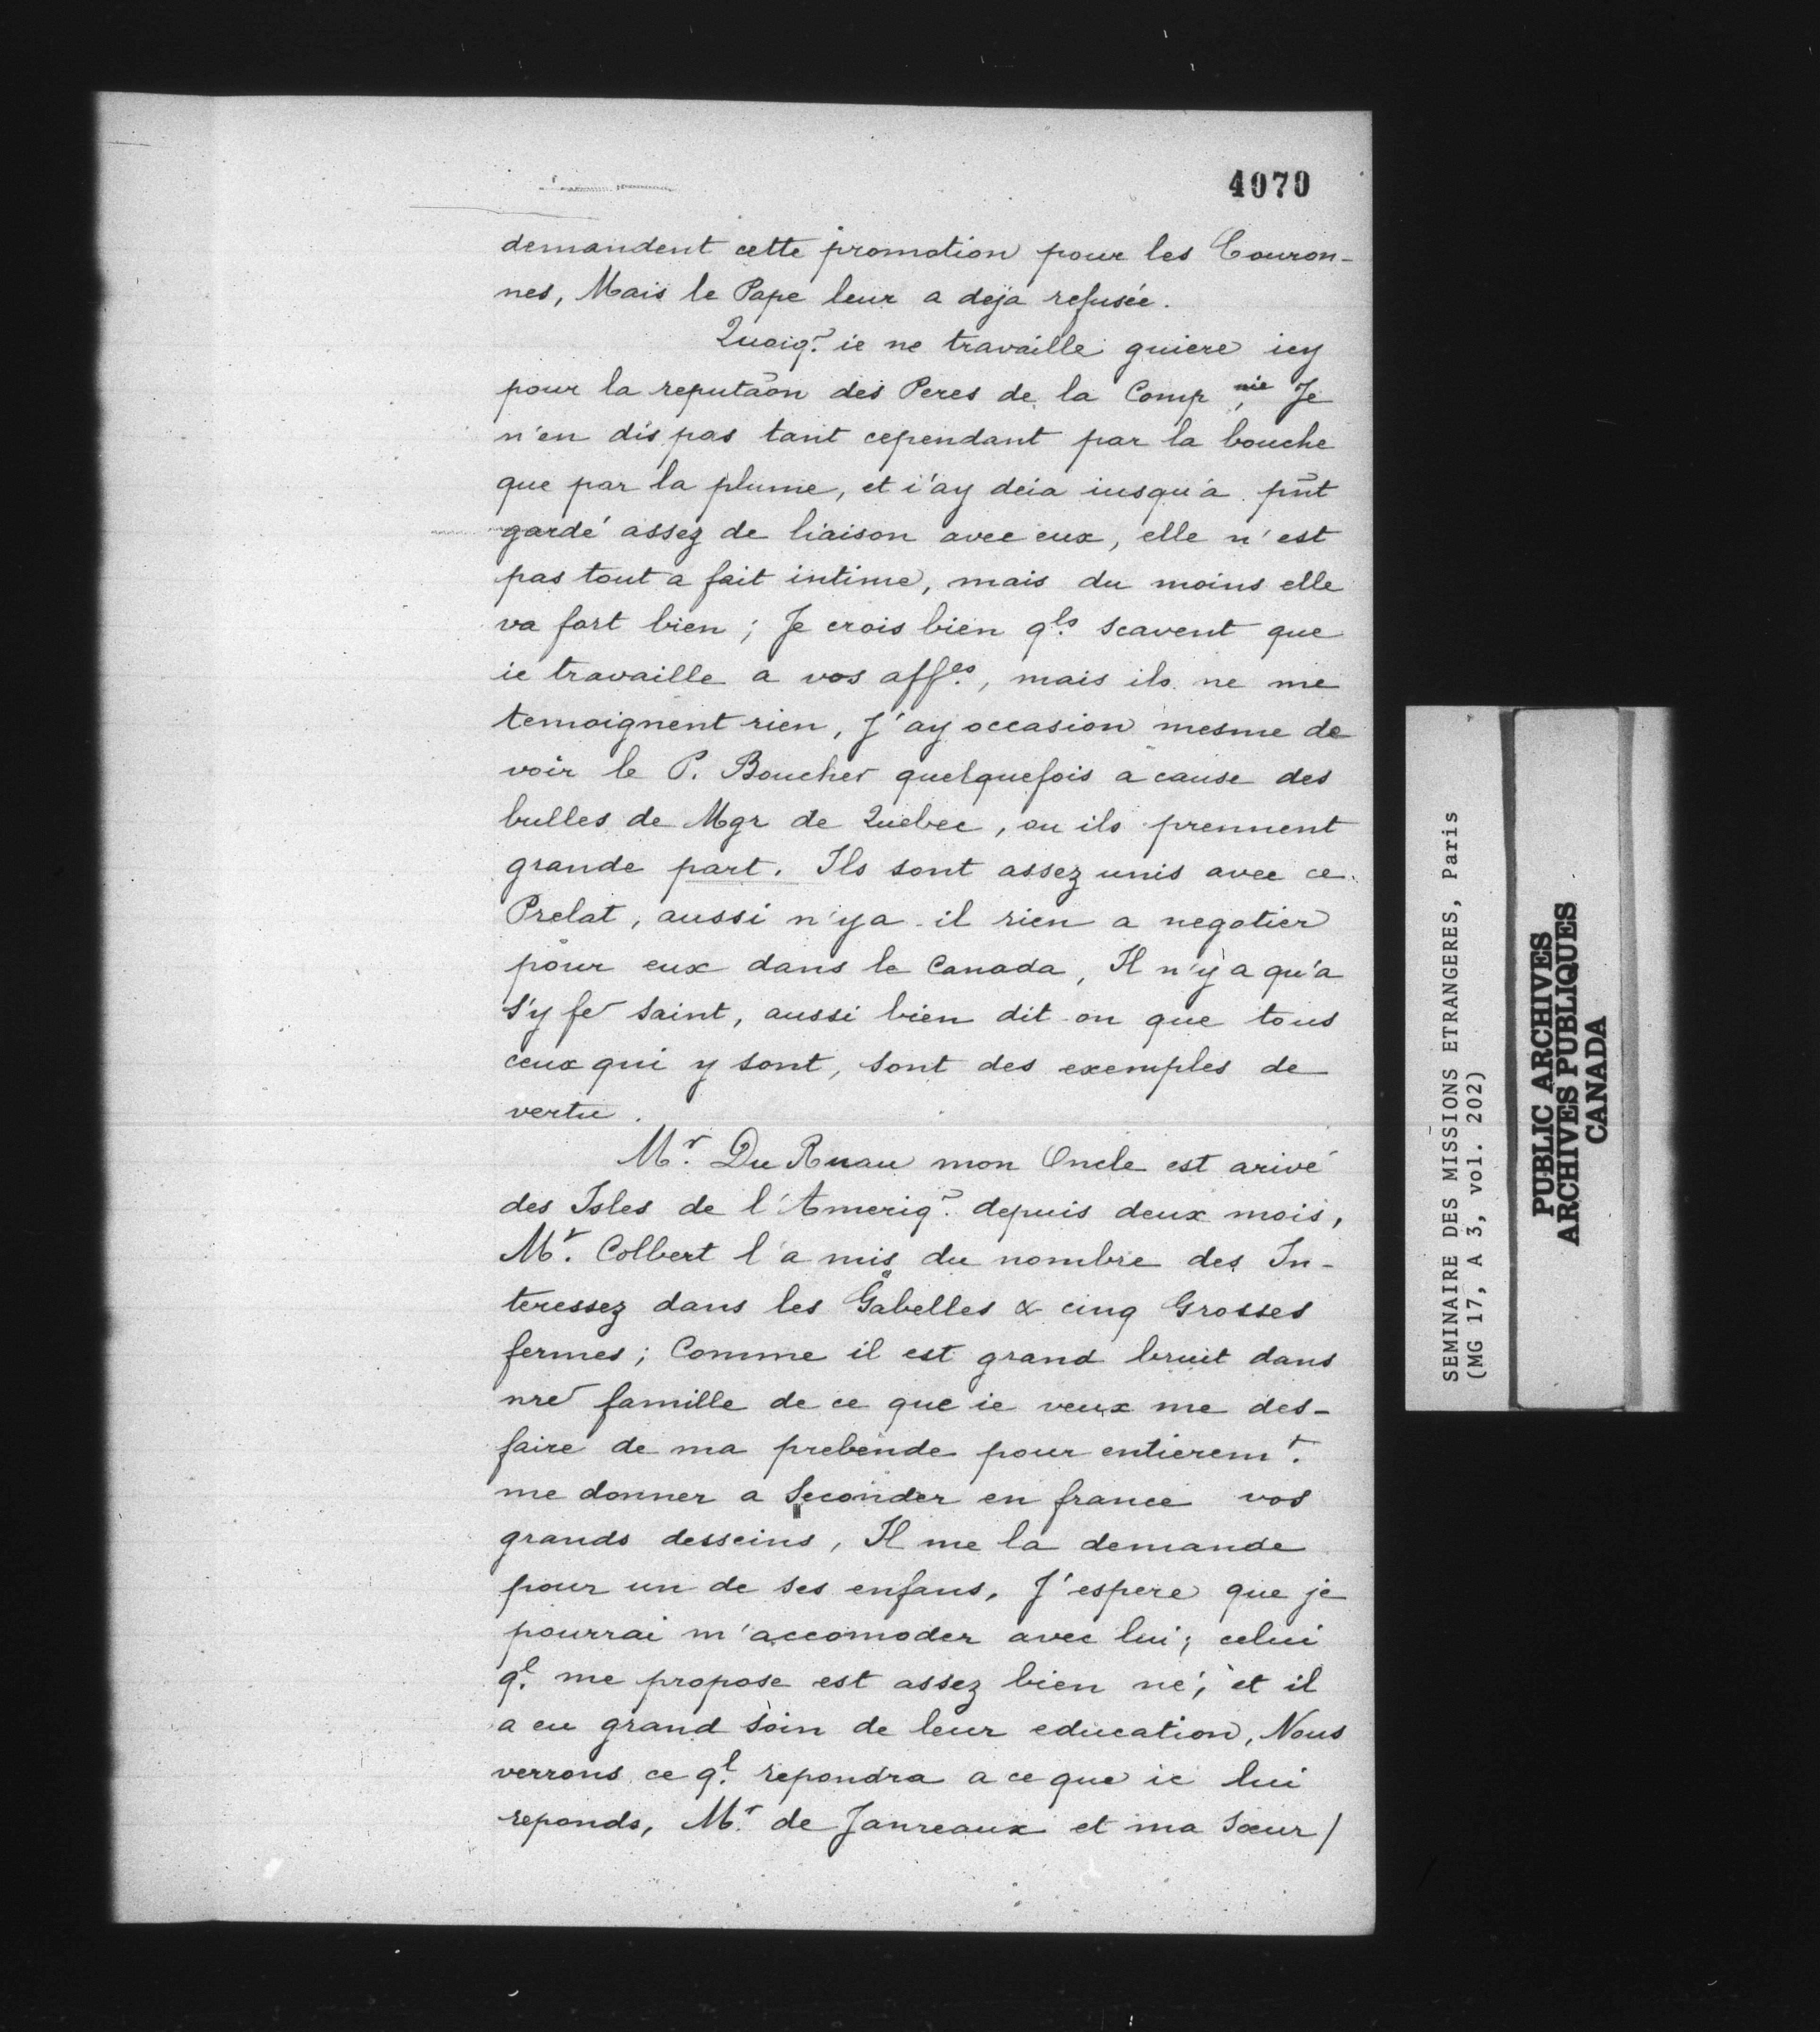 4070
demandent cette promotion pour les Couron-
nes, Mais le Pape leur a deja refusée.
Quoiq.̃ ie ne travaille guiere icy
pour la reputaõn des Peres de la Comp.nie Je
n'en dis pas tant cependant par la bouche
que par la plume, et i'ay deia iusqu'a pñt
gardé assez de liaison avec eux, elle n'est
pas tout a fait intime, mais du moins elle
va fort bien; Je crois bien q.ls scavent que
ie travaille a vos aff.es, mais ils ne me
temoignent rien, J'ay occasion mesme de
voir le P. Boucher quelquefois a cause des
bulles de Mgr de Quebec, ou ils prennent
grande part. Ils sont assez unis avec ce
Prelat, aussi n'y a-il rien a negotier
pour eux dans le Canada, Il n'y a qu'a
s'y fe saint, aussi bien dit-on que tous
ceux qui y sont, sont des exemples de
vertu.
M.r Du Ruau mon Oncle est arivé
des Isles de l'Ameriq.̃ depuis deux mois,
M.r Colbert l'a mis du nombre des In-
teressez dans les Gabelles & cinq Grosses
fermes; Comme il est grand bruit dans
nre famille de ce que ie veux me des-
faire de ma prebende pour entierem.t
me donner a Seconder en france vos
grands desseins, Il me la demande
pour un de ses enfans, J'espere que je
pourrai m'accomoder avec lui; celui
q.l me propose est assez bien né; et il
a eu grand soin de leur education, Nous
verrons ce q.l repondra a ce que ie lui
reponds, M.r de Janreaux et ma Sœur/
SEMINAIRE DES MISSIONS ETRANGERES, Paris
(MG 17, A 3, vol. 202)
PUBLIC ARCHIVES
ARCHIVES PUBLIQUES
CANADA